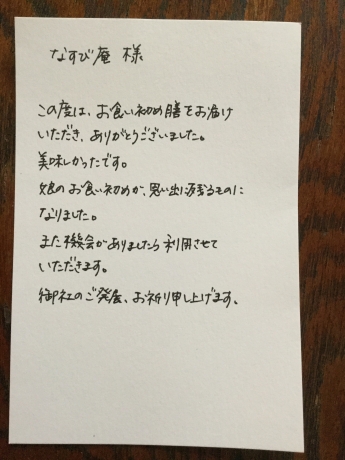 なすび庵 様
この度は、お食い初め膳をお届け
いただき、ありがとうございました。
美味しかったです。
娘のお食い初めが、思い出に残るものに
なりました。
また機会がありましたら利用させて
いただきます。
御社のご発展、お祈り申し上げます。